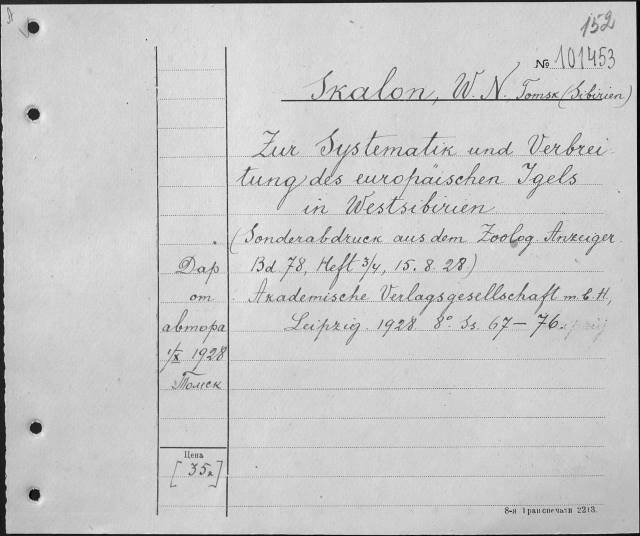 152
№ 101453
Skalon, W. N. Tomsk (Sibirien)
Zur Systematik und Verbrei-
tung des europäischen Igels
in Westsibirien
(Sonderabdruck aus dem Zoolog. Anzeiger
Bd. 78, Heft 3/4, 15. 8. 28)
Akademische Verlagsgesellschaft m. b. H,
Leipzig 1928 8° Ss. 67—76.
Дар
от
автора
1/X 1928
Томск
Цена
[35к]
8-я Транспечати 2213.